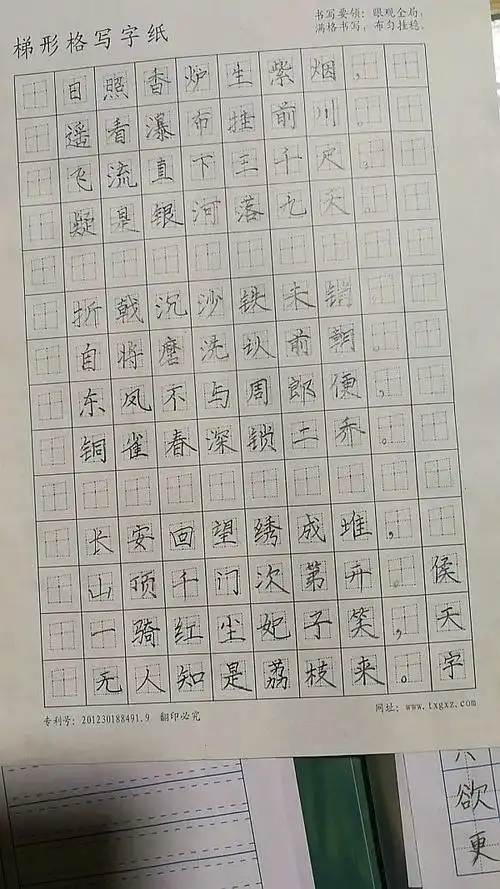 书写要领：眼观全局，
满格书写，布匀挂稳。
梯形格写字纸
日照香炉生紫烟，
遥看瀑布挂前川。
飞流直下三千尺，
疑是银河落九天。
折戟沉沙铁未销，
自将磨洗认前朝。
东风不与周郎便，
铜雀春深锁二乔。
长安回望绣成堆，
山顶千门次第开。侯
一骑红尘妃子笑，天
无人知是荔枝来。字
专利号：201230188491.9 翻印必究
网址：www.txgxz.com
欲
更